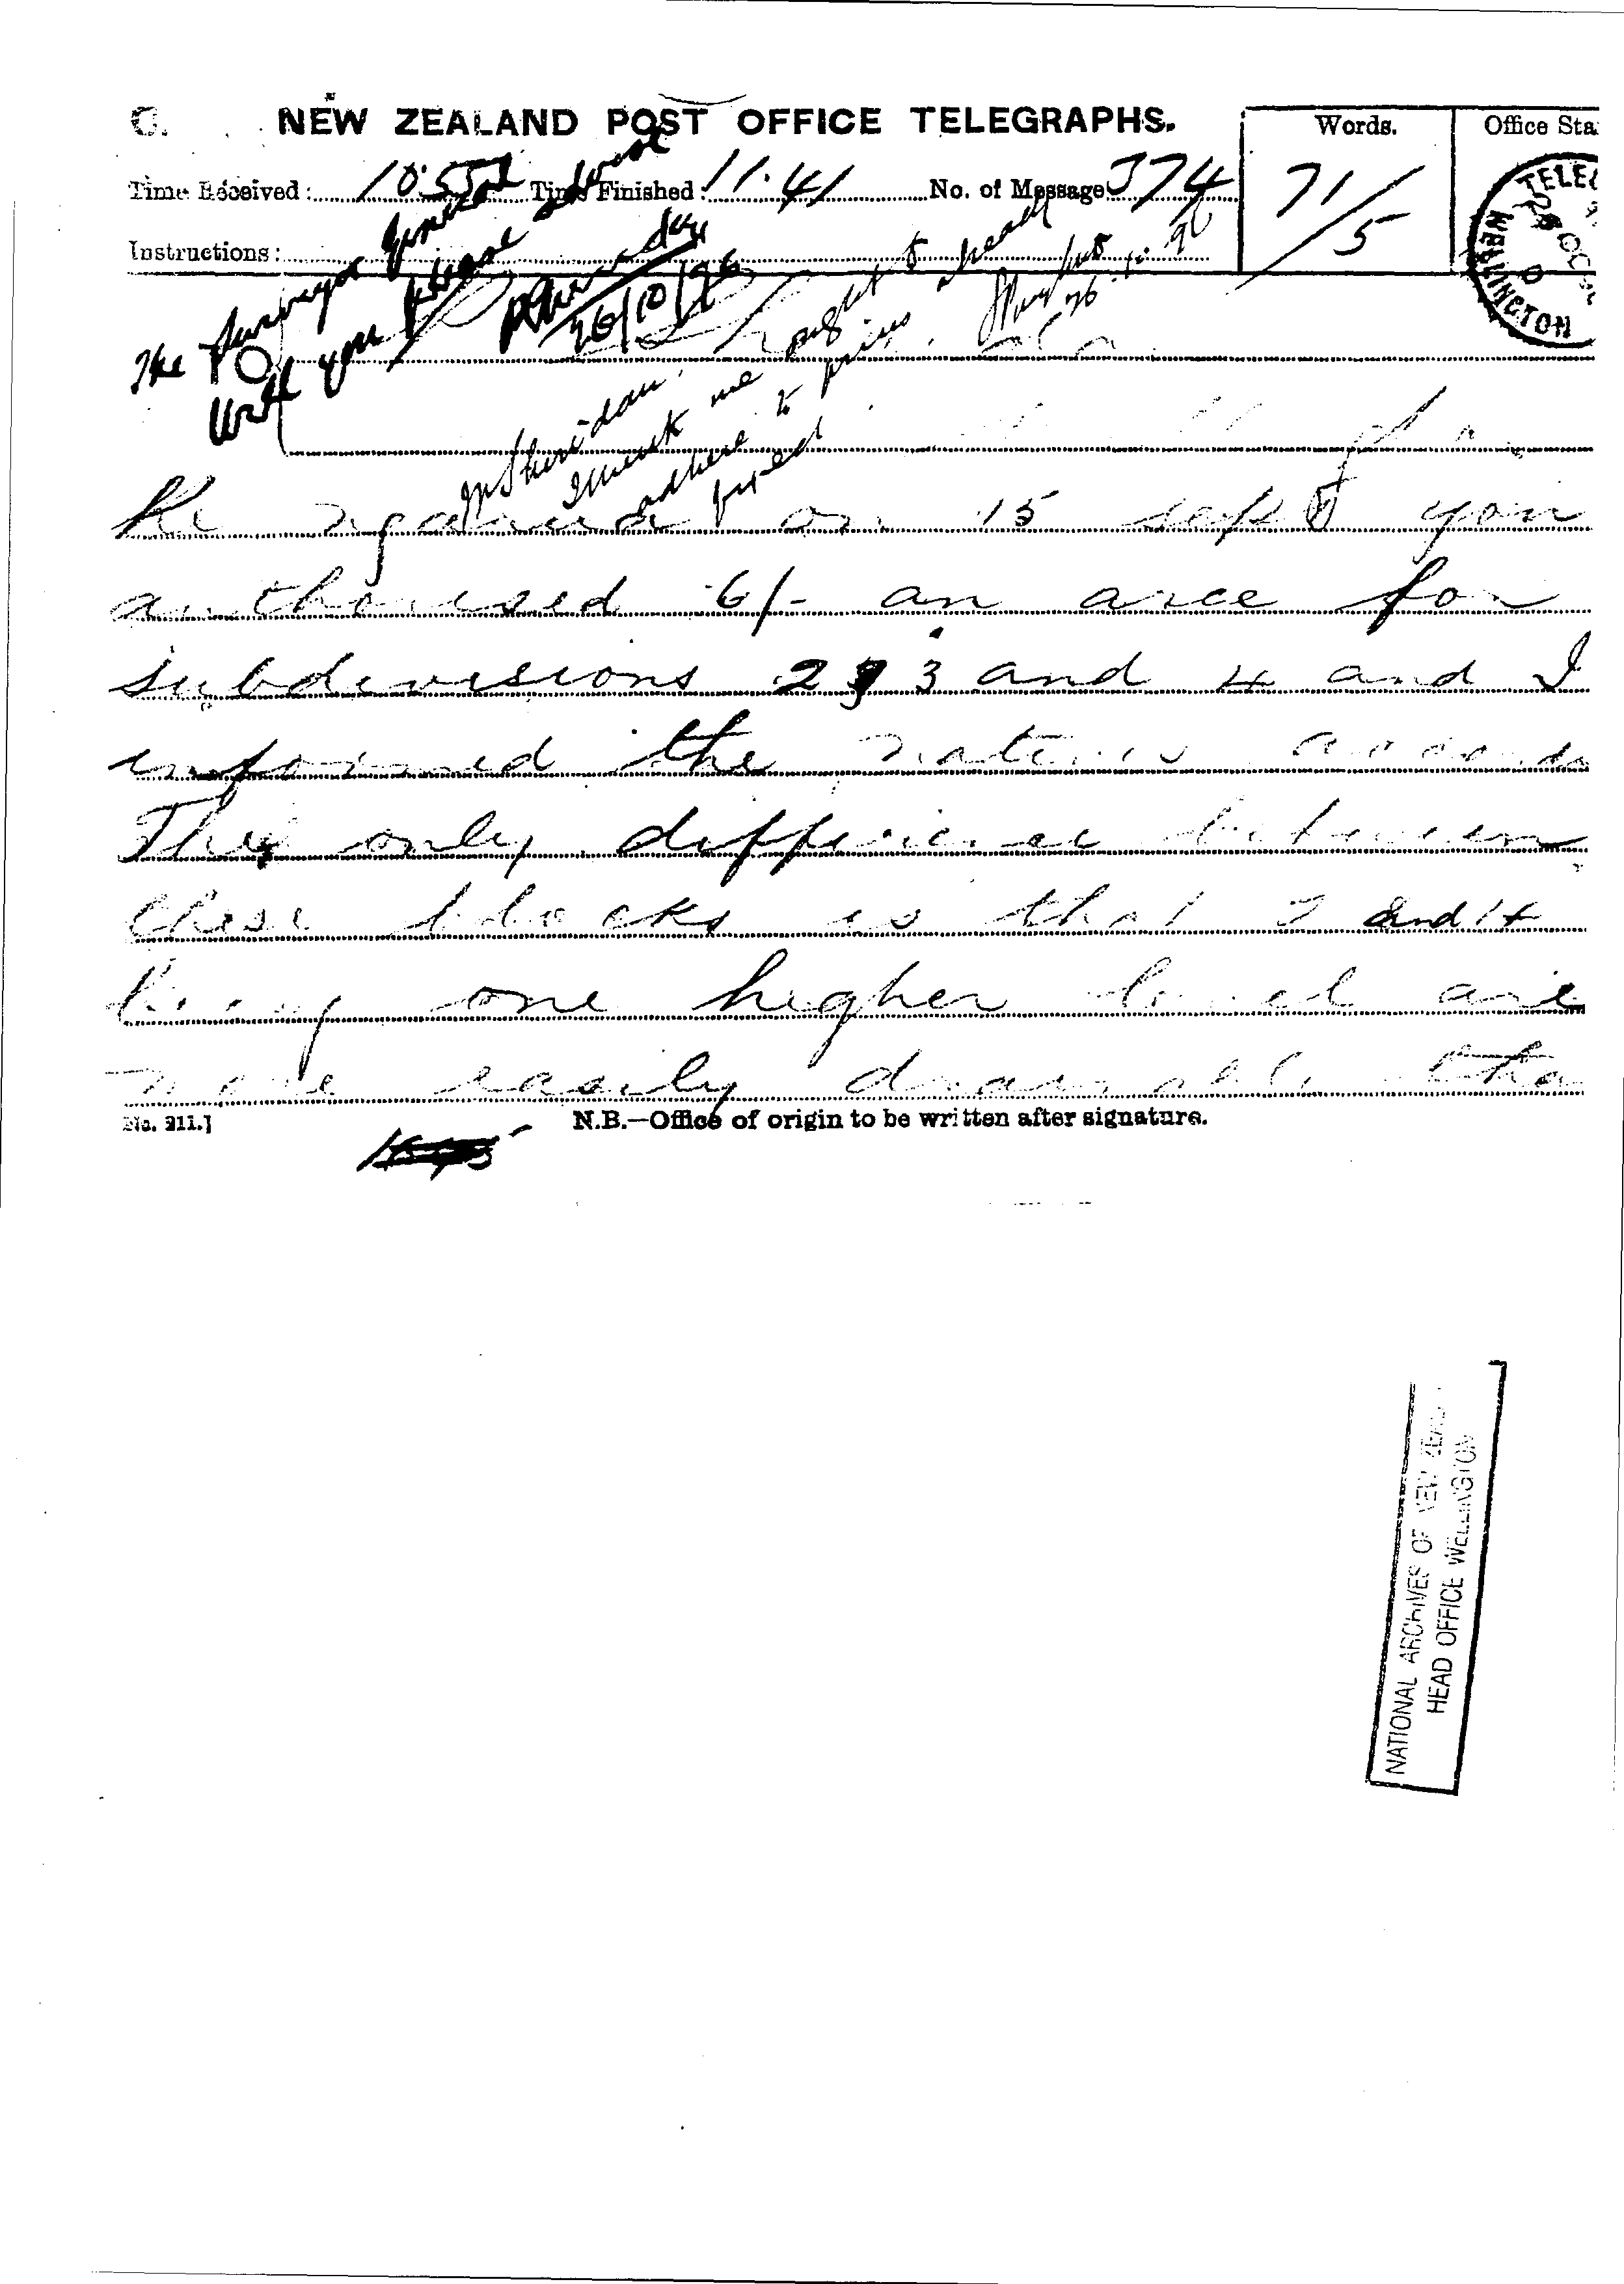 NEW ZEALAND POST OFFICE TELEGRAPHS.
Words.
Office Sta
Time Received: 10.55 Time Finished: 11.41 No. of Message 374
71/5
Instructions:
TELE
WELLINGTON
The Surveyor General
Will you please
26/10/96
Mr Sheridan.
I think we ought to
adhere to prices already
fixed
26 10 96
Re on 15 sept you
authorised 6/- an acre for
subdivisions 2 3 and 4 and I
informed the natives
The only difference between
these blocks is that 2 and 4
being one higher level are
more easily drainable tha
No. 211.]
N.B.—Office of origin to be written after signature.
NATIONAL ARCHIVES OF NEW ZEAL
HEAD OFFICE WELLINGTON